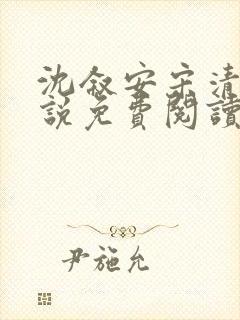 沈叙安宋清
說免費閱讀
尹施允